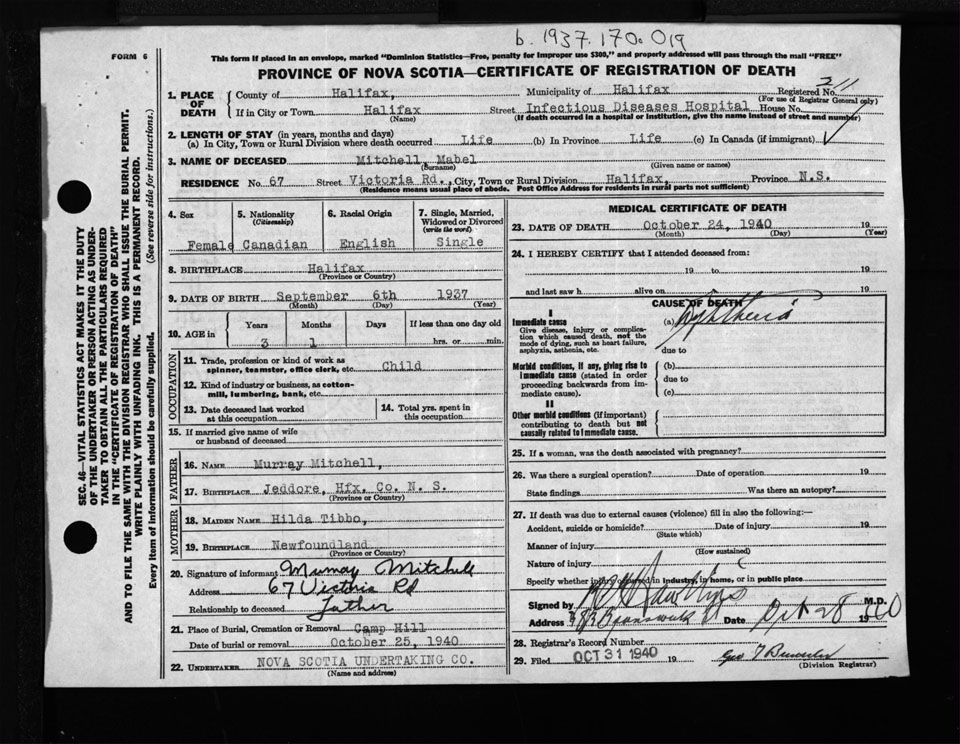 b. 1937. 170. 019
FORM 6
This form if placed in an envelope, marked "Dominion Statistics—Free, penalty for improper use $300," and properly addressed will pass through the mail "FREE"
PROVINCE OF NOVA SCOTIA—CERTIFICATE OF REGISTRATION OF DEATH
SEC. 46—VITAL STATISTICS ACT MAKES IT THE DUTY
OF THE UNDERTAKER OR PERSON ACTING AS UNDER-
TAKER TO OBTAIN ALL THE PARTICULARS REQUIRED
IN THE "CERTIFICATE OF REGISTRATION OF DEATH"
AND TO FILE THE SAME WITH THE DIVISION REGISTRAR WHO SHALL ISSUE THE BURIAL PERMIT.
WRITE PLAINLY WITH UNFADING INK. THIS IS A PERMANENT RECORD.
Every item of information should be carefully supplied. (See reverse side for instructions.)
1. PLACE OF DEATH
County of Halifax, Municipality of Halifax Registered No. 211
(For use of Registrar General only)
If in City or Town Halifax Street Infectious Diseases Hospital House No.
(Name) (If death occurred in a hospital or institution, give name instead of street and number)
2. LENGTH OF STAY (in years, months and days)
(a) In City, Town or Rural Division where death occurred Life (b) In Province Life (c) In Canada (if immigrant)
3. NAME OF DECEASED Mitchell, Mabel
(Surname) (Given name or names)
RESIDENCE No. 67 Street Victoria Rd., City, Town or Rural Division Halifax, Province N.S.
(Residence means usual place of abode. Post Office Address for residents in rural parts not sufficient)
4. Sex 5. Nationality (Citizenship) 6. Racial Origin 7. Single, Married, Widowed or Divorced (write the word)
Female Canadian English Single
8. BIRTHPLACE Halifax
(Province or Country)
9. DATE OF BIRTH September 6th 1937
(Month) (Day) (Year)
10. AGE in Years Months Days If less than one day old
3 1 hrs. or min.
OCCUPATION
11. Trade, profession or kind of work as
spinner, teamster, office clerk, etc. Child
12. Kind of industry or business, as cotton-
mill, lumbering, bank, etc.
13. Date deceased last worked
at this occupation
14. Total yrs. spent in
this occupation
15. If married give name of wife
or husband of deceased
FATHER
16. NAME Murray Mitchell,
17. BIRTHPLACE Jeddore, Hfx. Co. N. S.
(Province or Country)
MOTHER
18. MAIDEN NAME Hilda Tibbo,
19. BIRTHPLACE Newfoundland
(Province or Country)
20. Signature of informant Murray Mitchell
Address 67 Victoria Rd
Relationship to deceased father
21. Place of Burial, Cremation or Removal Camp Hill
Date of burial or removal October 25, 1940
22. UNDERTAKER NOVA SCOTIA UNDERTAKING CO.
(Name and address)
MEDICAL CERTIFICATE OF DEATH
23. DATE OF DEATH October 24, 1940
(Month) (Day) (Year)
24. I HEREBY CERTIFY that I attended deceased from:
19 to 19
and last saw h alive on 19
CAUSE OF DEATH
I
Immediate cause (a) Diphtheria
Give disease, injury or complica-
tion which caused death, not the
mode of dying, such as heart failure,
asphyxia, asthenia, etc. due to
Morbid conditions, if any, giving rise to (b)
immediate cause (stated in order due to
proceeding backwards from im-
mediate cause). (c)
II
Other morbid conditions (if important)
contributing to death but not
causally related to immediate cause.
25. If a woman, was the death associated with pregnancy?
26. Was there a surgical operation? Date of operation 19
State findings Was there an autopsy?
27. If death was due to external causes (violence) fill in also the following:—
Accident, suicide or homicide? Date of injury 19
(State which)
Manner of injury
(How sustained)
Nature of injury
Specify whether injury occurred in industry, in home, or in public place
Signed by M.D.
Address Brunswick St Date Oct 28 1940
28. Registrar's Record Number
29. Filed OCT 31 1940 19
(Division Registrar)